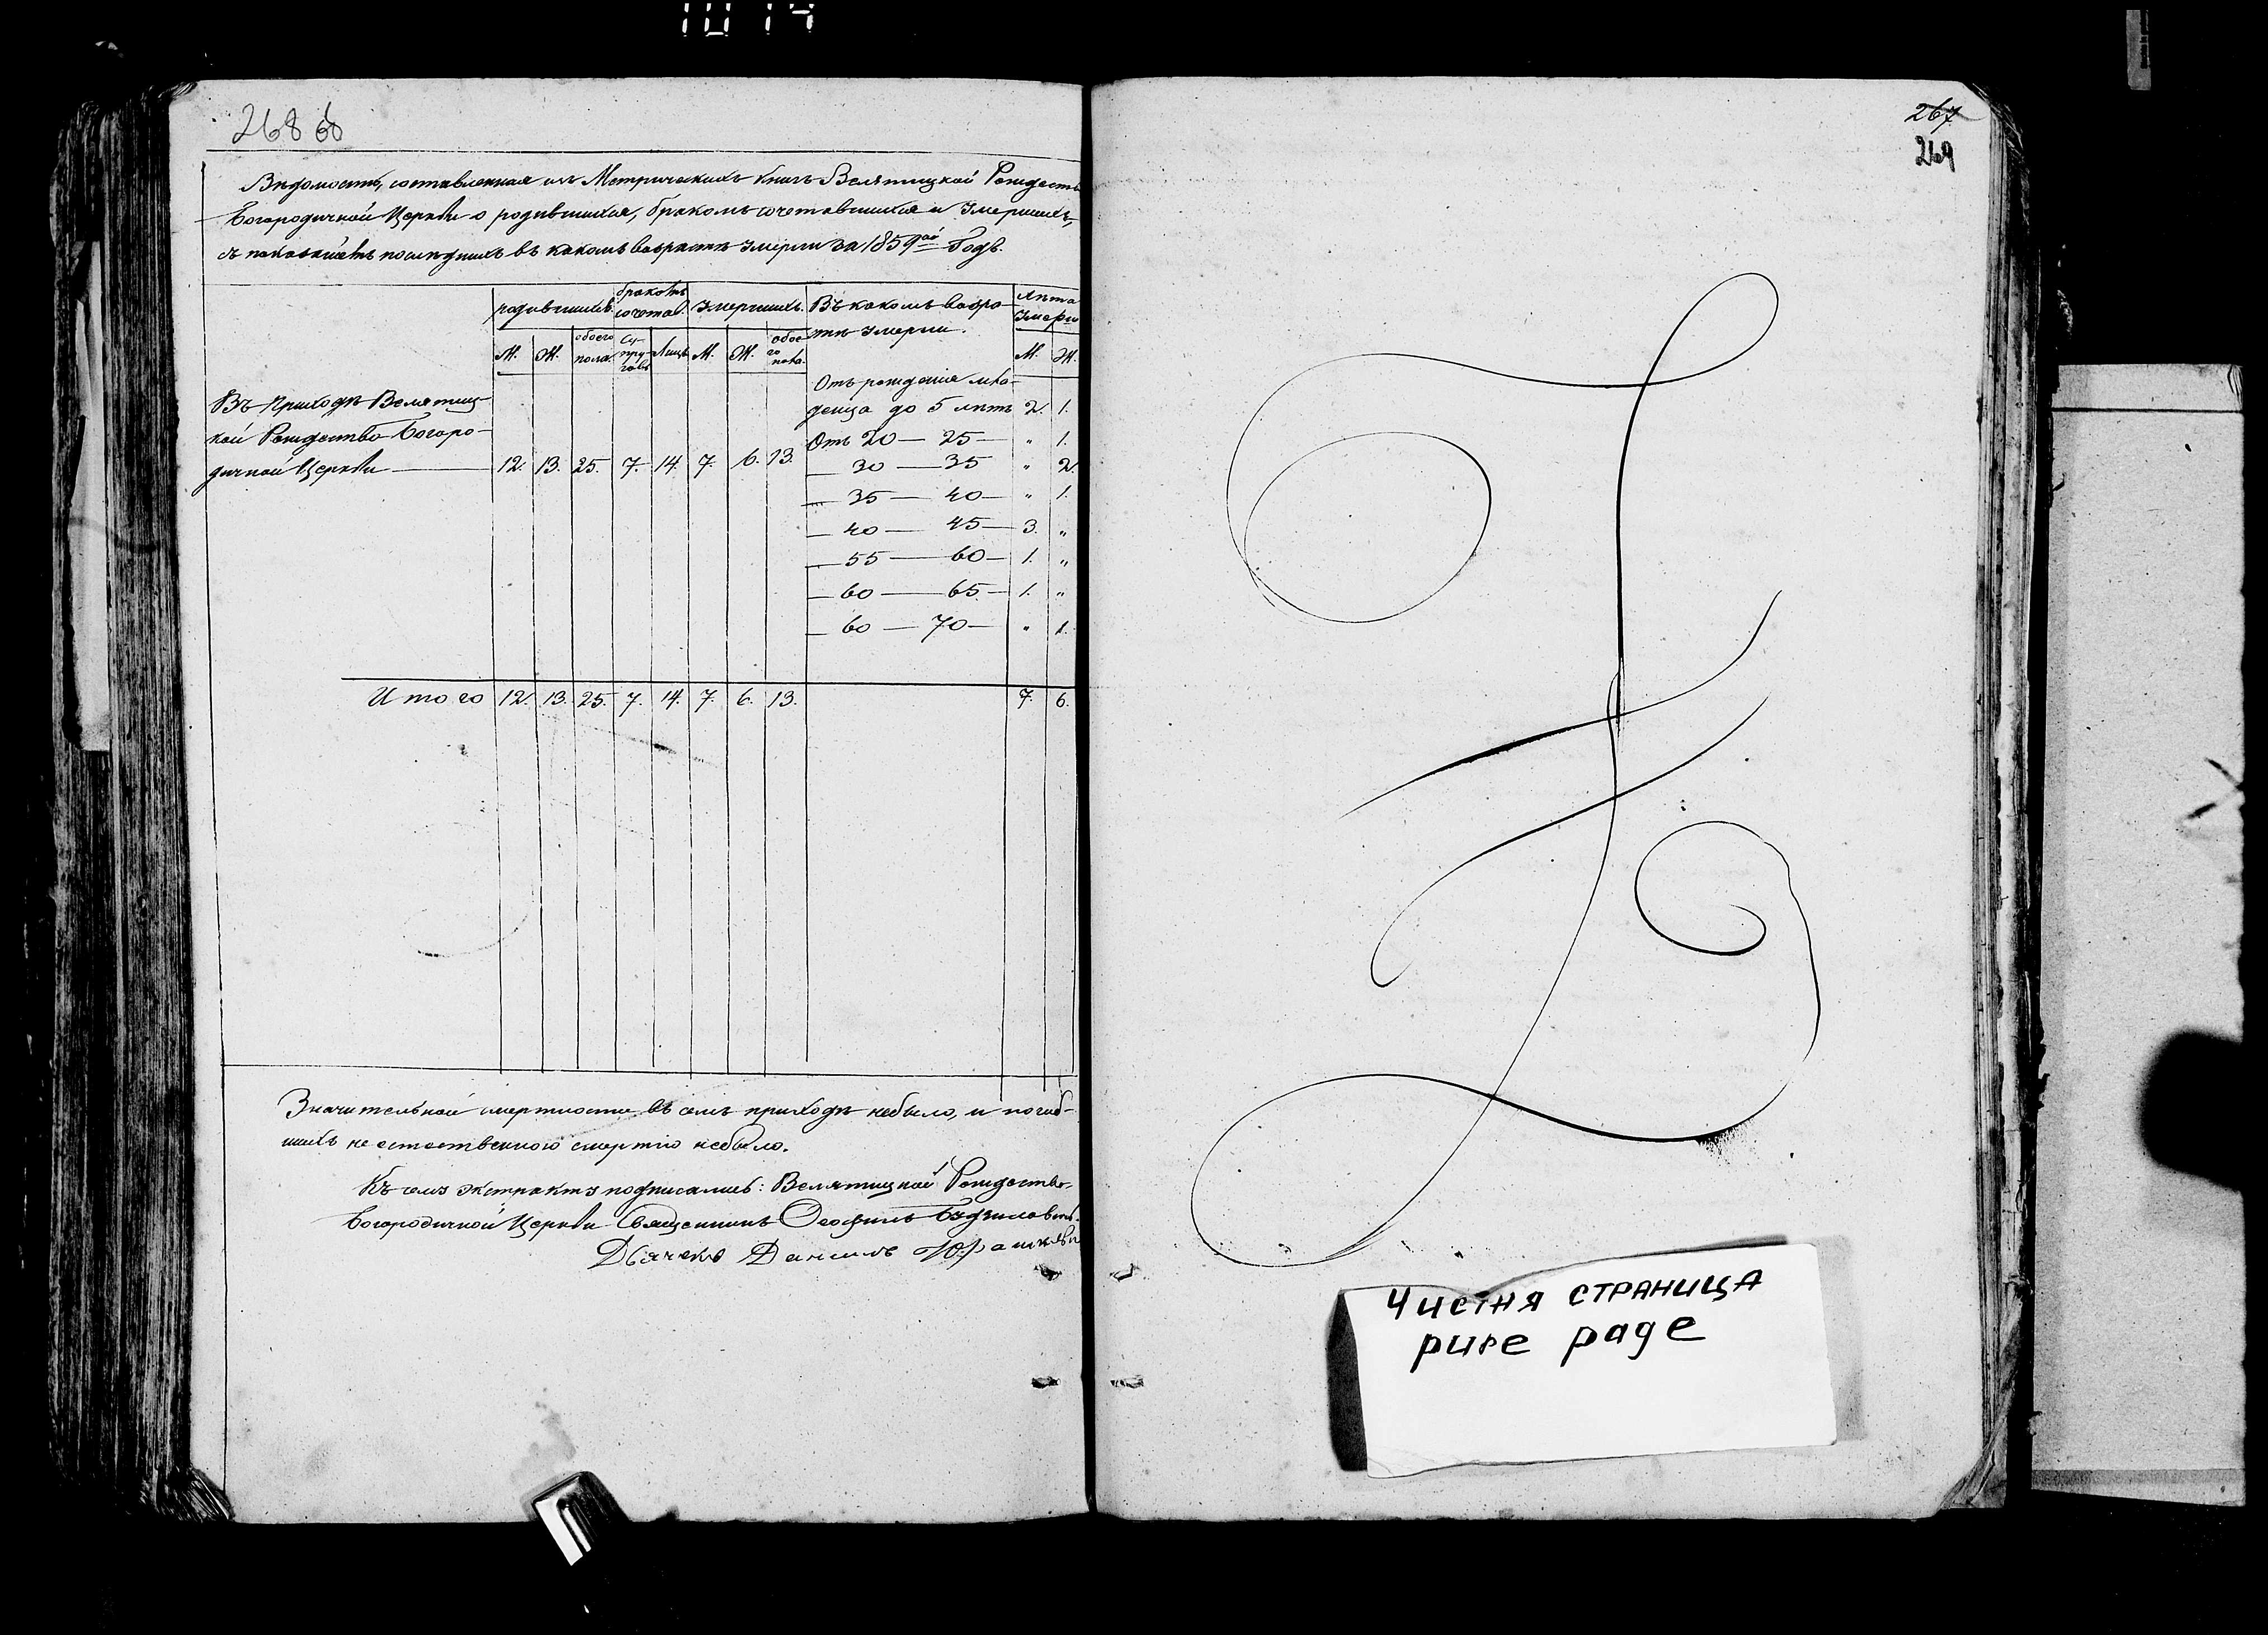 1014
268 об
Вѣдомость, составленная изъ Метрическихъ Книгъ Велятицкой Рождество
Богородичной Церкви о родившихся, бракомъ сочетавшихся и Умершихъ,
съ показаніемъ послѣднихъ въ какомъ возрастѣ умерли за 1859ый Годъ.
родившихся. бракомъ сочетав. Умершихъ. Въ какомъ возрастѣ умерли. Лѣта Умерш
М. Ж. обоего пола. Супруговъ Лицъ М. Ж. обоего пола. М. Ж.
Въ Приходѣ Велятиц-
кой Рождество-Богоро-
дичной Церкви — 12. 13. 25. 7. 14. 7. 6. 13.
Отъ рожденія мла-
денца до 5 лѣтъ 2. 1.
Отъ 20 — 25 — „ 1.
— 30 — 35 „ 2.
— 35 — 40 — „ 1.
— 40 — 45 — 3. „
— 55 — 60 — 1. „
— 60 — 65 — 1. „
— 60 — 70 — „ 1.
Итого 12. 13. 25. 7. 14. 7. 6. 13. 7. 6.
Значительной смертности въ семъ приходѣ небыло, и погиб-
шихъ не естественною смертію небыло.
Къ сему экстракту подписались: Велятицкой Рождество-
Богородичной Церкви Священникъ Ѳеофилъ
Дьячекъ Даніилъ
267
269
Чистня страница
pure page